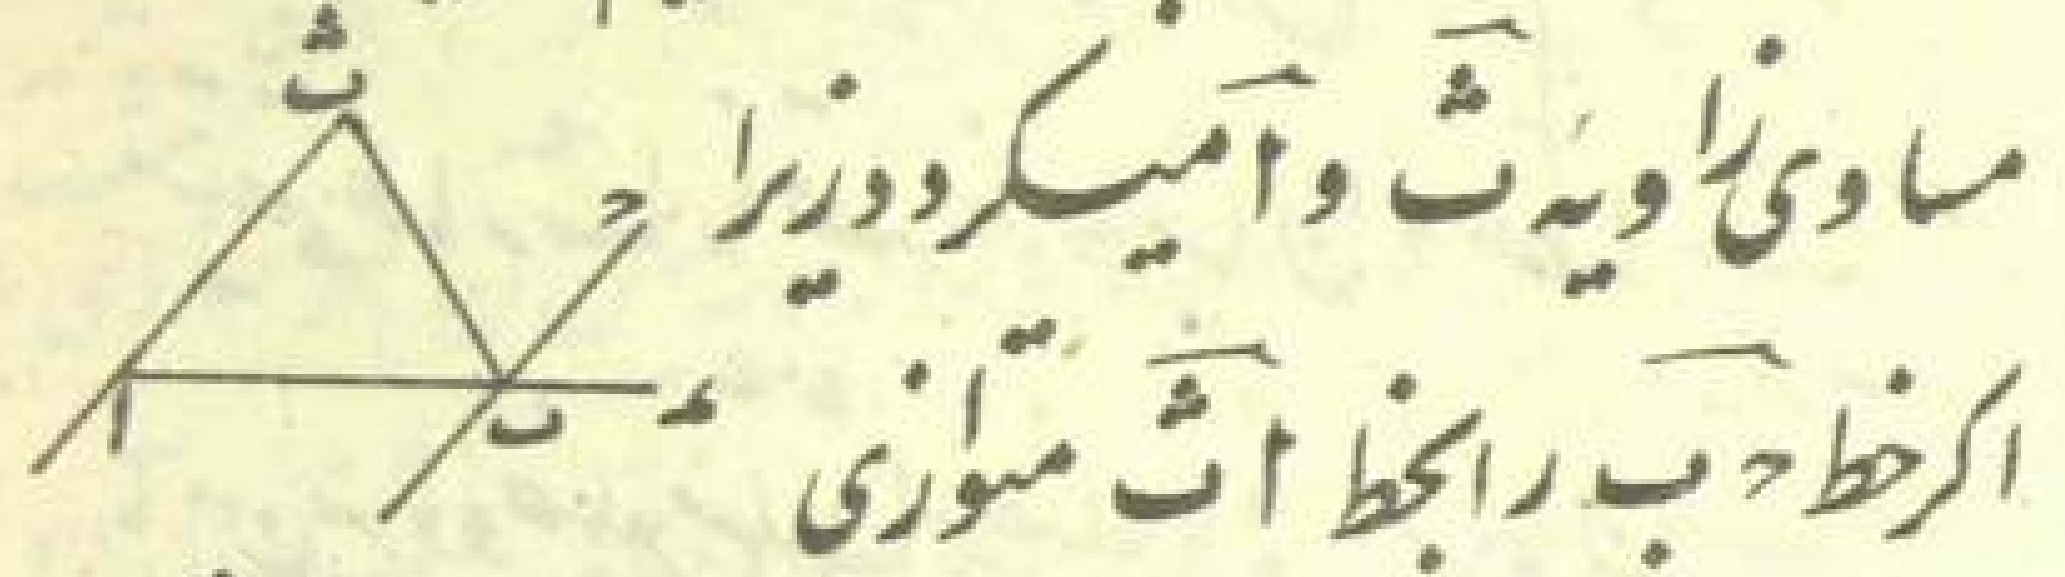 مساوی زاویه ث و ا میگردد زیرا
اگر خط د ب را بخط ا ث متوازی
ث
د
ا
ب